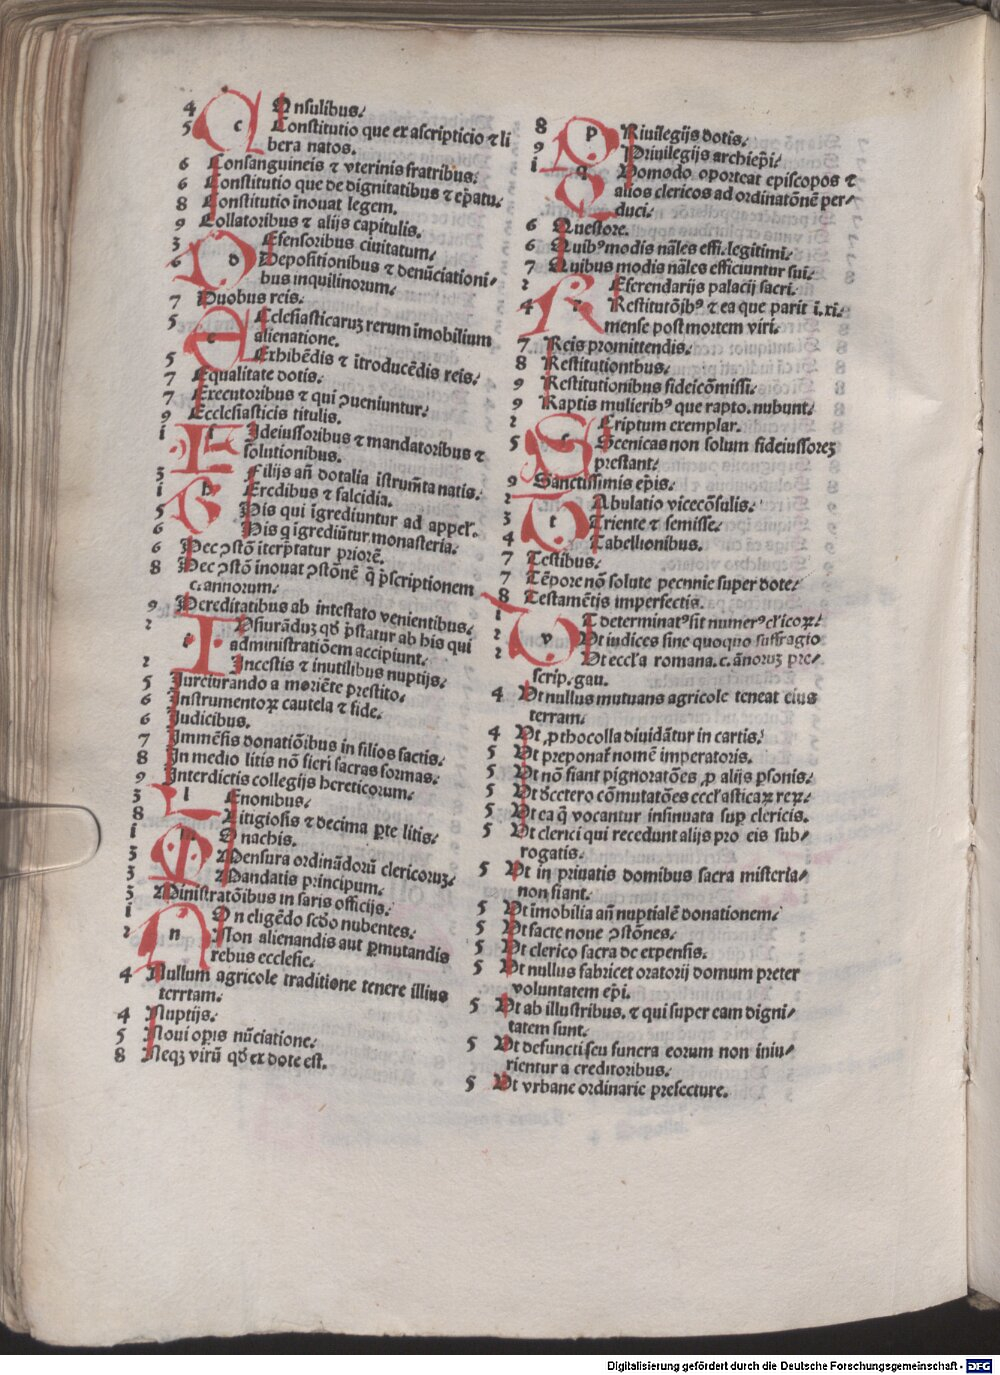 4 c Onsulibus.
5 Constitutio que ex ascripticio ⁊ li
bera natos.
6 Consanguineis ⁊ vterinis fratribus.
6 Constitutio que de dignitatibus ⁊ ep̄atu.
8 Constitutio īnouat legem.
9 Collatoribus ⁊ alijs capitulis.
3 d Efensoribus ciuitatum.
6 Depositionibus ⁊ denūciationi⸗
bus inquilinorum.
7 Duobus reis.
5 e Cclesiasticaruꝫ rerum īmobilium
alienatione.
5 Exhibēdis ⁊ ītroducēdis reis.
7 Equalitate dotis.
7 Executoribus ⁊ qui ꝯueniuntur.
9 Ecclesiasticis titulis.
i f Ideiussoribus ⁊ mandatoribus ⁊
solutionibus.
3 Filijs añ dotalia īstrum̄ta natis.
i h Eredibus ⁊ falcidia.
5 His qui īgrediuntur ad appel̄.
6 His q̄ igrediūtur monasteria.
6 Hec ꝯstō īterp̄tatur priorē.
8 Hec ꝯstō inouat ꝯstōnē q̄ p̄scriptionem
c. annorum.
9 Hereditatibus ab intestato venientibus.
2 i Psiurāduꝫ qđ p̄statur ab his qui
administratiōem accipiunt.
2 Incestis ⁊ inutilibus nuptijs.
5 Jureiurando a moriēte prestito.
6 Instrumentoꝝ cautela ⁊ fide.
6 Judicibus.
7 Immēsis donatiōibus in filios factis.
8 In medio litis nō fieri sacras formas.
9 Interdictis collegijs hereticorum.
3 l Enonibus.
8 Litigiosis ⁊ decima ꝑte litis.
i m Onachis.
3 Mensura ordinādorū clericoruꝫ.
3 Mandatis principum.
3 Ministratōibus in saris officijs.
i n On eligēdo scđo nubentes.
2 Non alienandis aut ꝑmutandis
rebus ecclesie.
4 Nullum agricole traditione tenere illius
terrtam.
4 Nuptijs.
5 Noui oꝑis nūciatione.
8 Neqꝫ virū qđ ex dote est.
8 p Riuilegijs dotis.
9 Priuilegijs archiep̄i.
i q Vomodo oporteat episcopos ⁊
alios clericos ad ordinatōnē per⸗
duci.
6 Questore.
6 Quibꝰ modis nāles effi. legitimi.
7 Quibus modis nāles efficiuntur sui.
2 r Eferendarijs palacij sacri.
4 Restitutōībꝰ ⁊ ea que parit i. xi.
mense post mortem viri.
7 Reis promittendis.
8 Restitutionibus.
9 Restitutionibus fideicōmissi.
9 Raptis mulieribꝰ que rapto. nubunt.
2 s Criptum exemplar.
5 Scenicas non solum fideiussoreꝫ
prestant.
9 Sanctissimis ep̄is.
2 t Abulatio vicecōsulis.
3 Triente ⁊ semisse.
4 Tabellionibus.
7 Testibus.
7 Tēpore nō solute pecunie super dote.
8 Testamētis imperfectis.
i v T determinatꝰ sit numerꝰ cl̄icoꝝ.
2 Vt iudices sine quoquo suffragio
2 Vt eccl̄a romana. c. ānoruꝫ pre⸗
scrip. gau.
4 Vt nullus mutuans agricole teneat eius
terram.
4 Vt ꝓthocolla diuidātur in cartis.
5 Vt preponat̄ nomē imperatoris.
5 Vt nō fiant pignoratōes ꝓ alijs ꝑsonis.
5 Vt d̄cetero cōmutatōes eccl̄asticaꝝ reꝝ.
5 Vt ea q̄ vocantur insinuata suꝑ clericis.
5 Vt clerici qui recedunt alijs pro eis sub⸗
rogatis.
5 Vt in priuatis domibus sacra misteria⸗
non fiant.
5 Vt īmobilia añ nuptialē donationem.
5 Vt facte noue ꝯstōnes.
5 Vt clerico sacra de expensis.
5 Vt nullus fabricet oratorij domum preter
voluntatem ep̄i.
5 Vt ab illustribus. ⁊ qui super eam digni⸗
tatem sunt.
5 Vt defuncti seu funera eorum non iniu⸗
rientur a creditoribus.
5 Vt vrbane ordinarie prefecture.
Digitalisierung gefördert durch die Deutsche Forschungsgemeinschaft - DFG